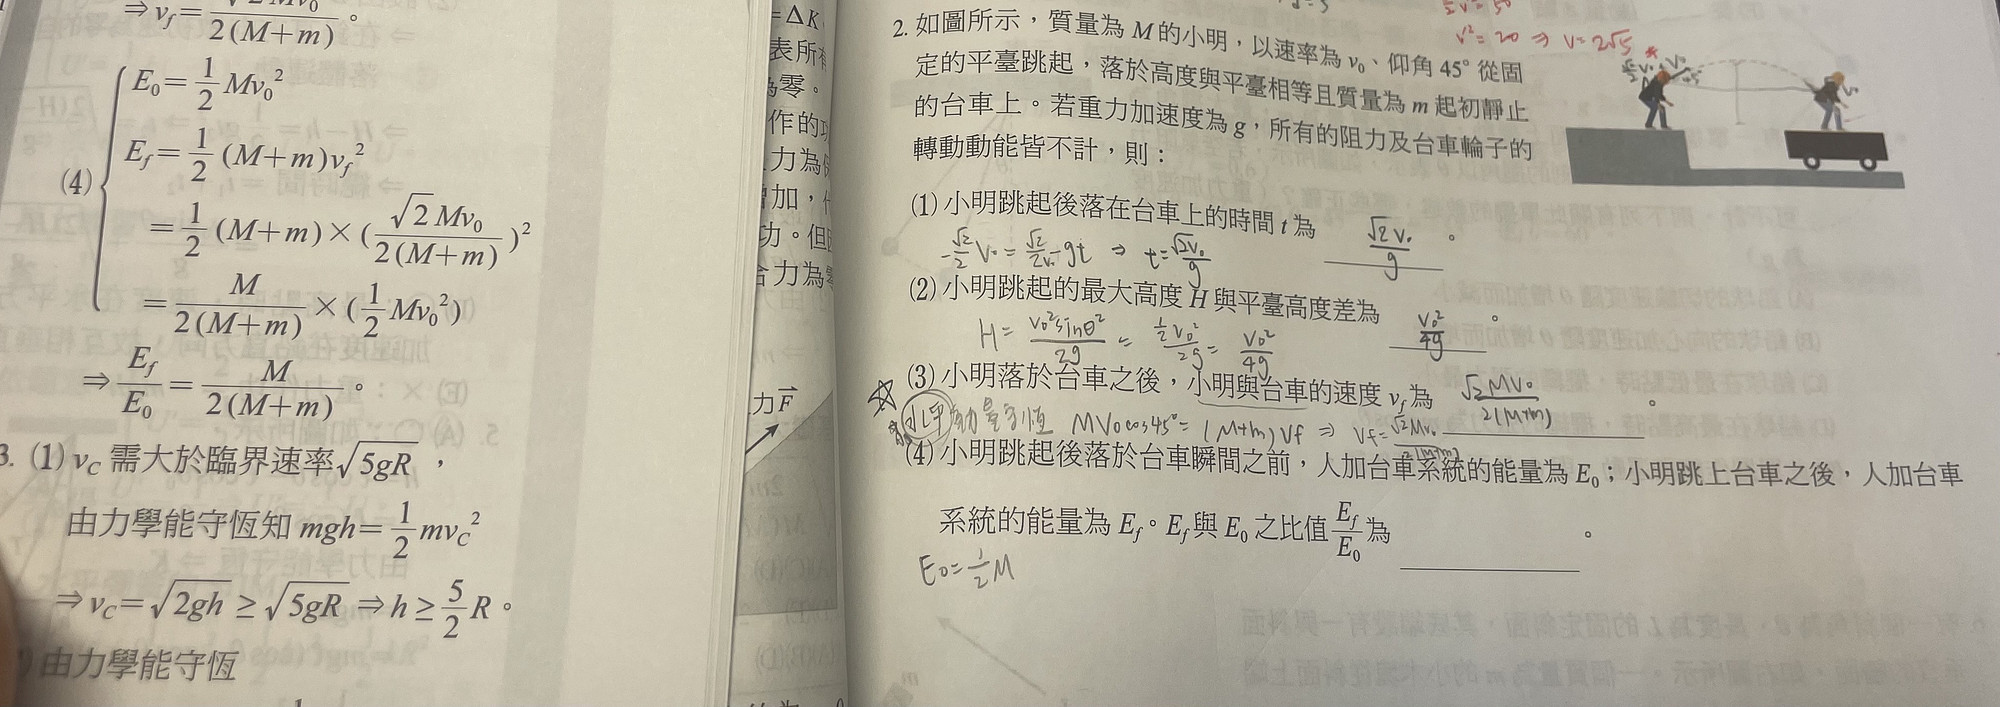 ⇒ v_f = √2 Mv₀ / 2(M+m) 。
(4) E₀ = 1/2 Mv₀²
E_f = 1/2 (M+m)v_f²
= 1/2 (M+m) × ( √2 Mv₀ / 2(M+m) )²
= M / 2(M+m) × ( 1/2 Mv₀² )
⇒ E_f / E₀ = M / 2(M+m) 。
3. (1) v_C 需大於臨界速率 √5gR ,
由力學能守恆知 mgh = 1/2 mv_C²
⇒ v_C = √2gh ≥ √5gR ⇒ h ≥ 5/2 R 。
) 由力學能守恆
= ΔK
表所有
為零。
作的功
力為保
增加,
功。但
合力為零
力 F⃗
v² = 20 ⇒ v = 2√5
2. 如圖所示,質量為 M 的小明,以速率為 v₀、仰角 45° 從固
定的平臺跳起,落於高度與平臺相等且質量為 m 起初靜止
的台車上。若重力加速度為 g,所有的阻力及台車輪子的
轉動動能皆不計,則:
(1) 小明跳起後落在台車上的時間 t 為 √2 v₀ / g 。
-√2/2 v₀ = √2/2 v₀ - gt ⇒ t = √2 v₀ / g
(2) 小明跳起的最大高度 H 與平臺高度差為 v₀² / 4g 。
H = v₀² sinθ² / 2g = 1/2 v₀² / 2g = v₀² / 4g
(3) 小明落於台車之後,小明與台車的速度 v_f 為 √2 MV₀ / 2(M+m) 。
水平動量守恆 MV₀ cos45° = (M+m) Vf ⇒ Vf = √2 Mv₀ / 2(M+m)
(4) 小明跳起後落於台車瞬間之前,人加台車系統的能量為 E₀;小明跳上台車之後,人加台車
系統的能量為 E_f。E_f 與 E₀ 之比值 E_f / E₀ 為 。
E₀ = 1/2 M